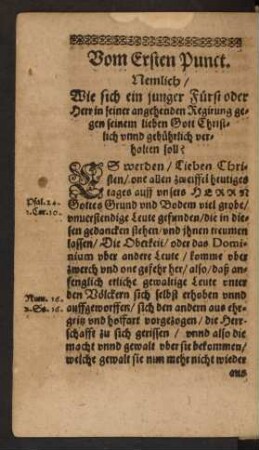 Vom Ersten Punct.
Nemlich/
Wie sich ein junger Fürst oder
Herr in seiner angehenden Regirung ge-
gen seinem lieben Gott Christ-
lich vnnd gebührlich ver-
halten soll?
ES werden/ Lieben Chri-
sten/ one allen zweiffel heutiges
tages auff vnsers HERRN
Psal. 24.
1. Cor. 10.
Gottes Grund vnd Bodem viel grobe/
vnuerstendige Leute gefunden/ die in die-
sen gedancken stehen/ vnd jhnen treumen
lassen/ Die Oberkeit/ oder das Domi-
nium vber andere Leute/ komme vber
zwerch vnd one gefehr her/ also/ daß an-
fenglich etliche gewaltige Leute vnter
Num. 16.
2. Sa. 16.
den Völckern sich selbst erhoben vnnd
auffgeworffen/ sich den andern aus ehr-
geitz vnd hoffart vorgezogen/ die Herr-
schafft zu sich gerissen/ vnnd also die
macht vnnd gewalt vber sie bekommen/
welche gewalt sie nun mehr nicht wieder
aus